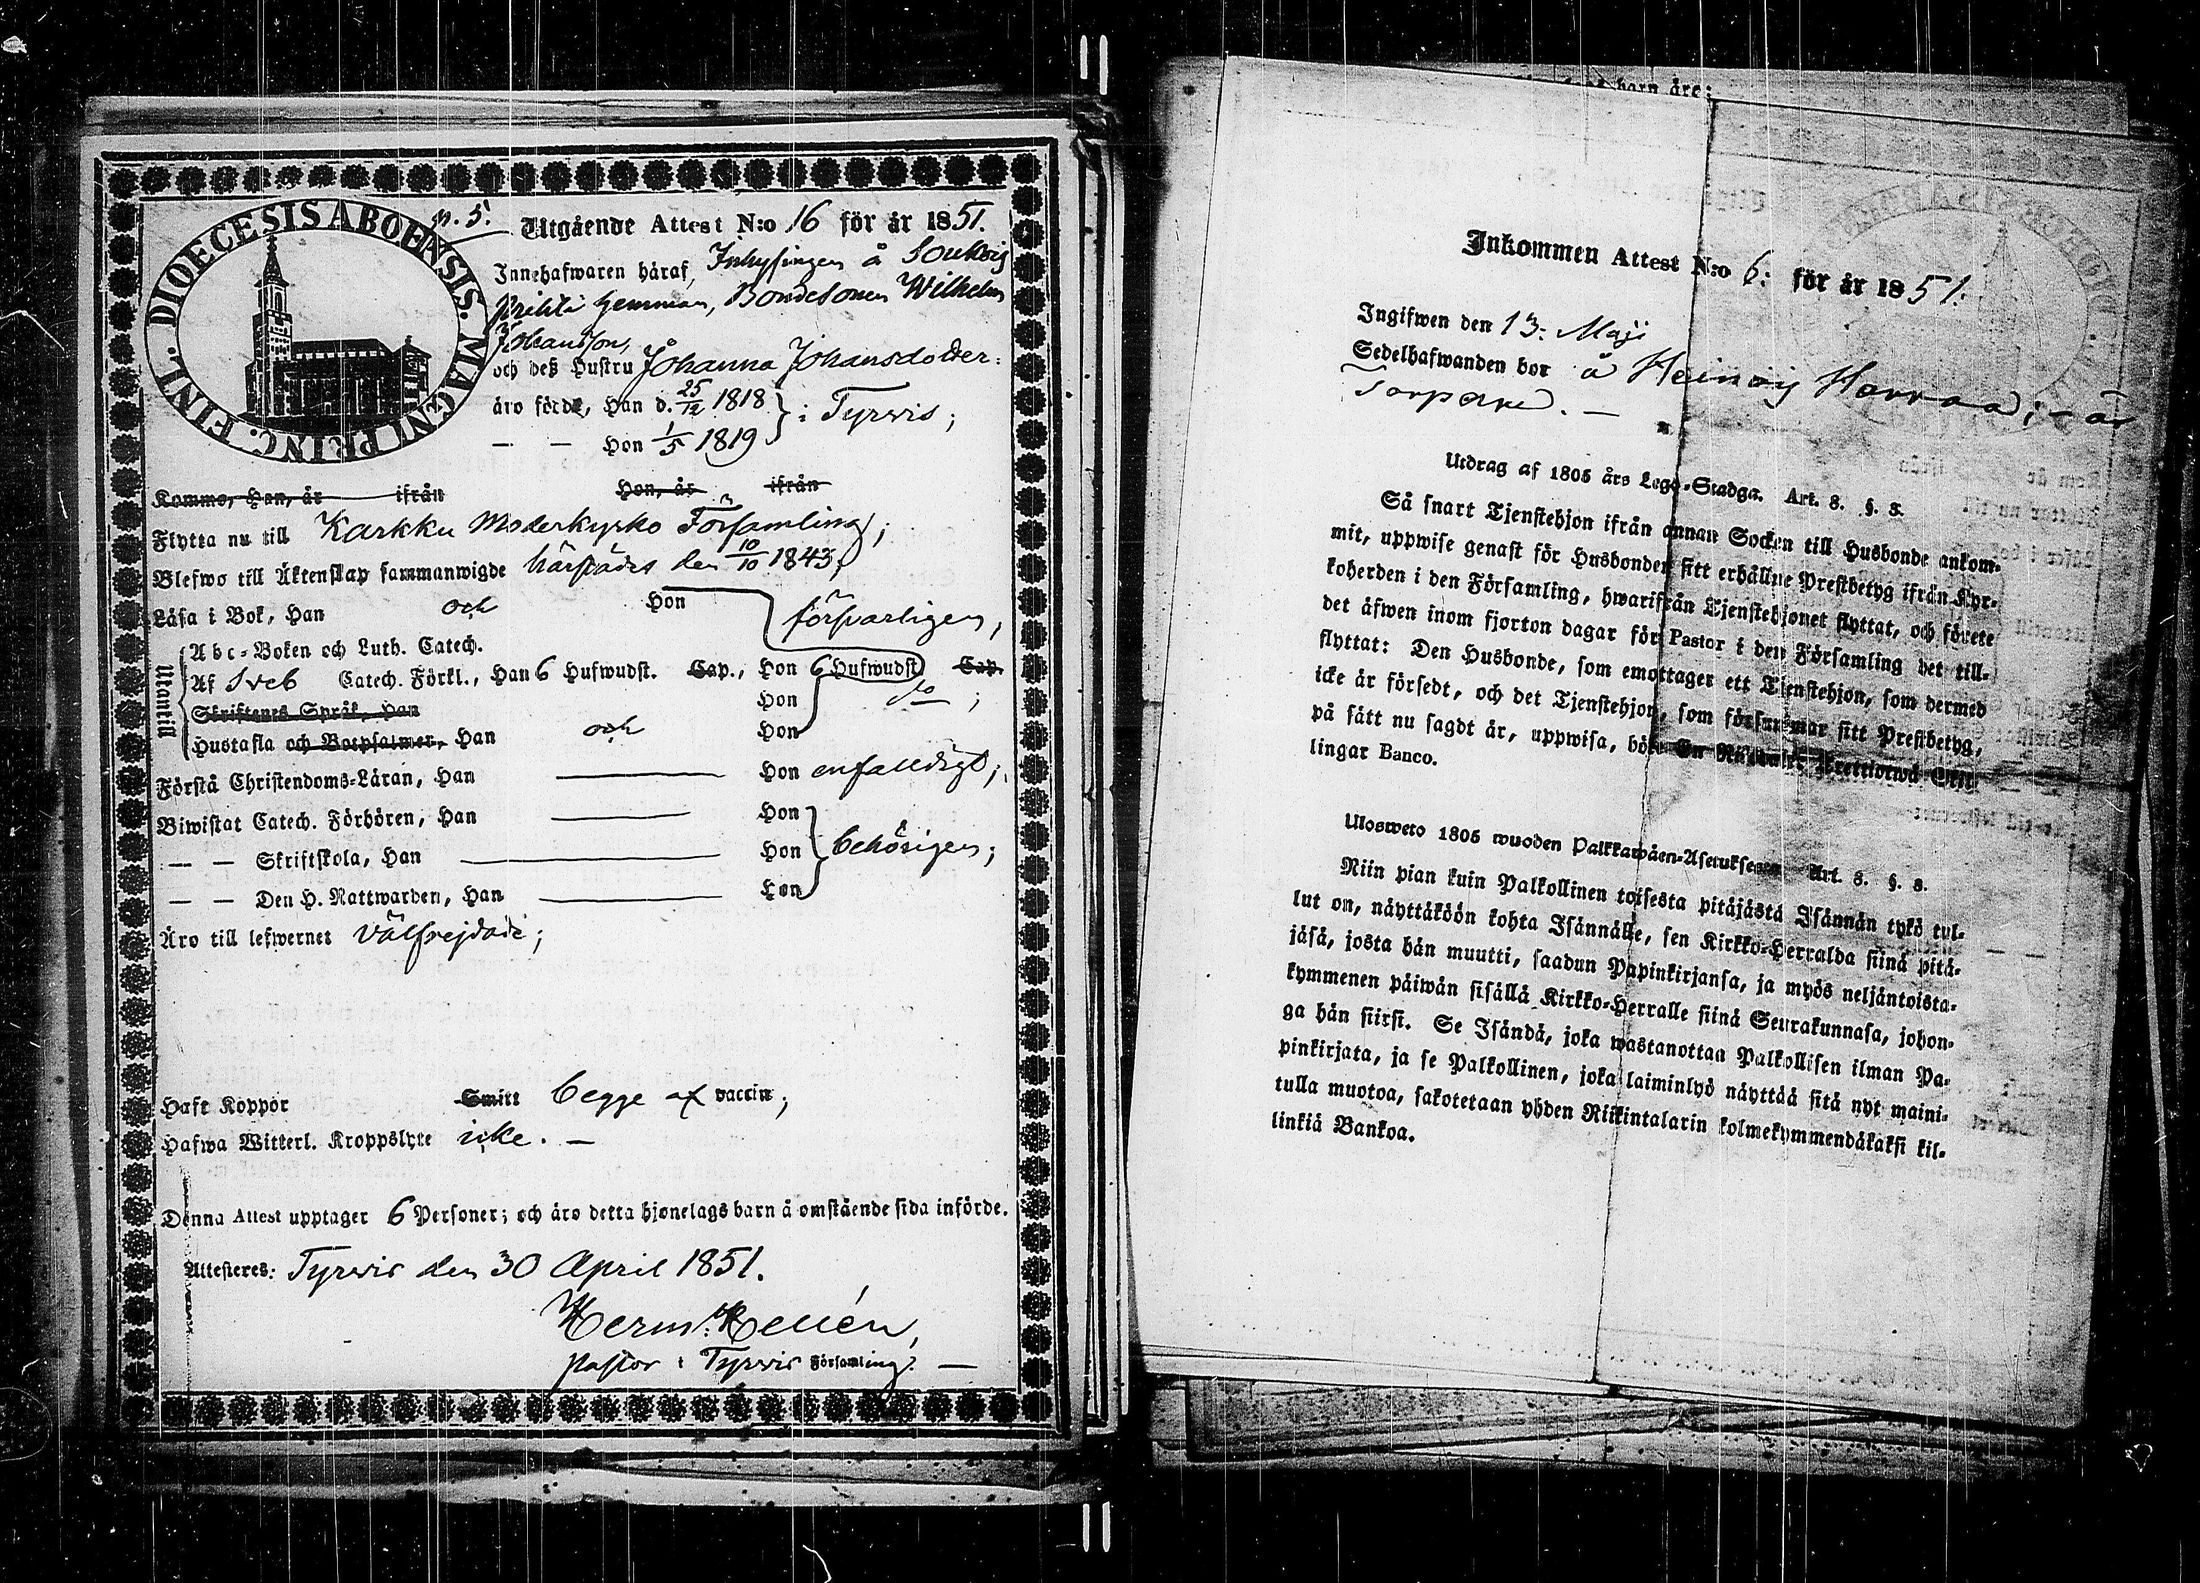 DIOECESIS ABOENSIS. MAGNI PRINC. FINL.
n. 5.
Utgående Attest N:o 16 för år 1851.
Innehafwaren häraf, Inhysingen å
hemman, Bondesonen Wilhelm
Johansson,
och deß Hustru Johanna Johansdotter:
äro födde, Han d. 25/12 1818 } i Tyrvis;
— — Hon 1/5 1819
Kommo, Han, år ifrån Hon, år ifrån
Flytta nu till Karkku Moderkyrko Församling;
Blefwo till Äktenskap sammanwigde härstädes den 10/10 1843;
Läsa i Bok, Han och Hon försvarligen,
Utantill
Abc-Boken och Luth. Catech.
Af Sveb Catech. Förkl., Han 6 Hufwudst. Cap., Hon 6 Hufwudst Cap.
Skriftenes Språk, Han Hon do;
Hustafla och Botpsalmer, Han och Hon
Förstå Christendoms-Läran, Han ——— Hon enfaldigt;
Biwistat Catech. Förhören, Han ——— Hon
— — Skriftskola, Han ——— Hon behörigen;
— — Den H. Nattwarden, Han ——— Hon
Äro till lefwernet välfrejdade;
Haft Koppor Smitt begge af vaccin;
Hafwa Witterl. Kroppslyte icke. —
Denna Attest upptager 6 Personer; och äro detta hjonelags barn å omstående sida införde.
Attesteres: Tyrvis den 30 April 1851.
Herm: Hellén,
Pastor i Tyrvis Församling. —
barn äre:
Inkommen Attest N:o 6: för år 1851:
Ingifwen den 13: Maji
Sedelhafwanden bor å Heinoij är
Torpare. —
Utdrag af 1805 års Lego-Stadga. Art. 8. §. 8.
Så snart Tjenstehjon ifrån annan Socken till Husbonde ankom-
mit, uppwise genast för Husbonden sitt erhållne Prestbetyg ifrån Kyr-
koherden i den Församling, hwarifrån Tjenstehjonet flyttat, och förete
det äfwen inom fjorton dagar för Pastor i den Församling det till-
flyttat: Den Husbonde, som emottager ett Tjenstehjon, som dermed
icke är försedt, och det Tjenstehjon, som försummar sitt Prestbetyg,
på sätt nu sagdt är, uppwisa, böte En Riksdaler Trettiotwå Skil-
lingar Banco.
Ulosweto 1805 wuoden Palkkawäen-Asetuksesta Art. 8. §. 8.
Niin pian kuin Palkollinen toisesta pitäjästä Isännän tykö tul-
lut on, näyttäköön kohta Isännälle, sen Kirkko-Herralda siinä pitä-
jäsä, josta hän muutti, saadun Papinkirjansa, ja myös neljäntoista-
kymmenen päiwän sisällä Kirkko-Herralle siinä Seurakunnasa, johon-
ga hän siirsi. Se Isändä, joka wastanottaa Palkollisen ilman Pa-
pinkirjata, ja se Palkollinen, joka laiminlyö näyttää sitä nyt maini-
tulla muotoa, sakotetaan yhden Riikintalarin kolmekymmendäkaksi kil-
linkiä Bankoa.